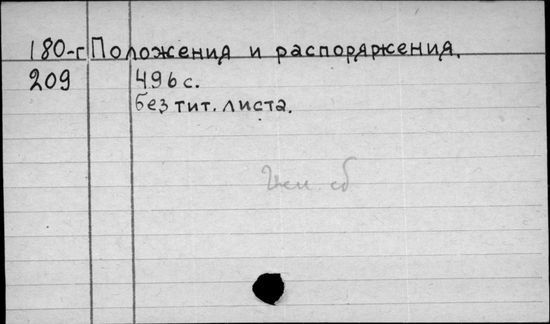 180-г Положения и распоряжения.
209 496 с.
без тит. листа.
сб